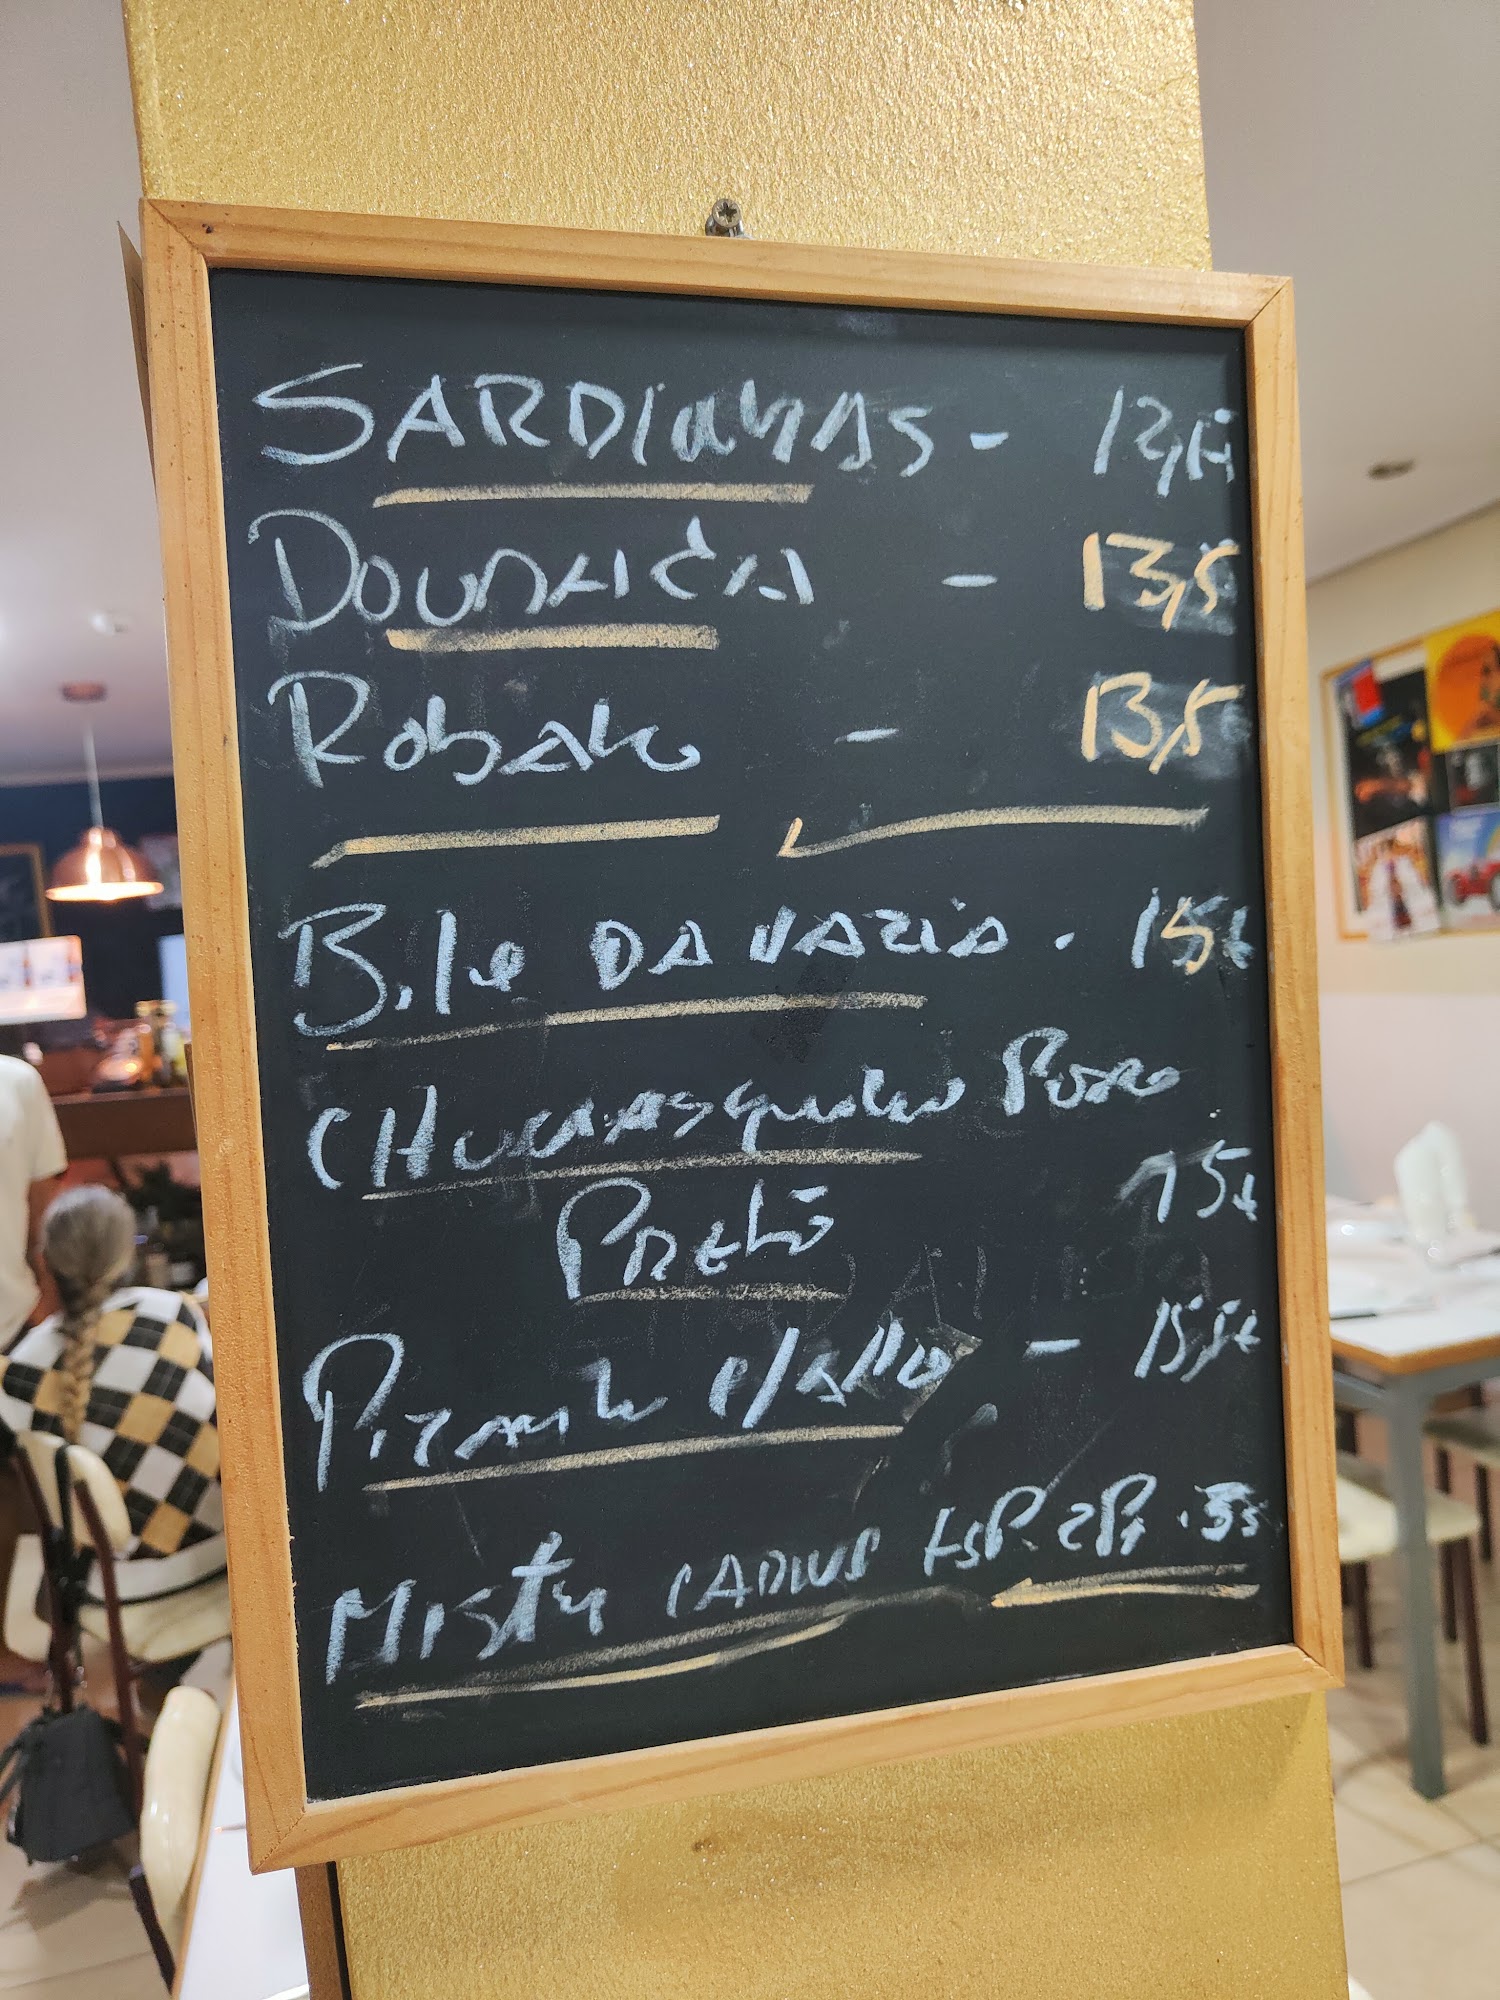 SARDinhAS -
DOURADA - 13,5
Robalo - 13,5
Bife DA VAZIA - 15€
CHurrasquinho Porco
Preto 15€
Picanha c/Alho - 15,5€
Mista